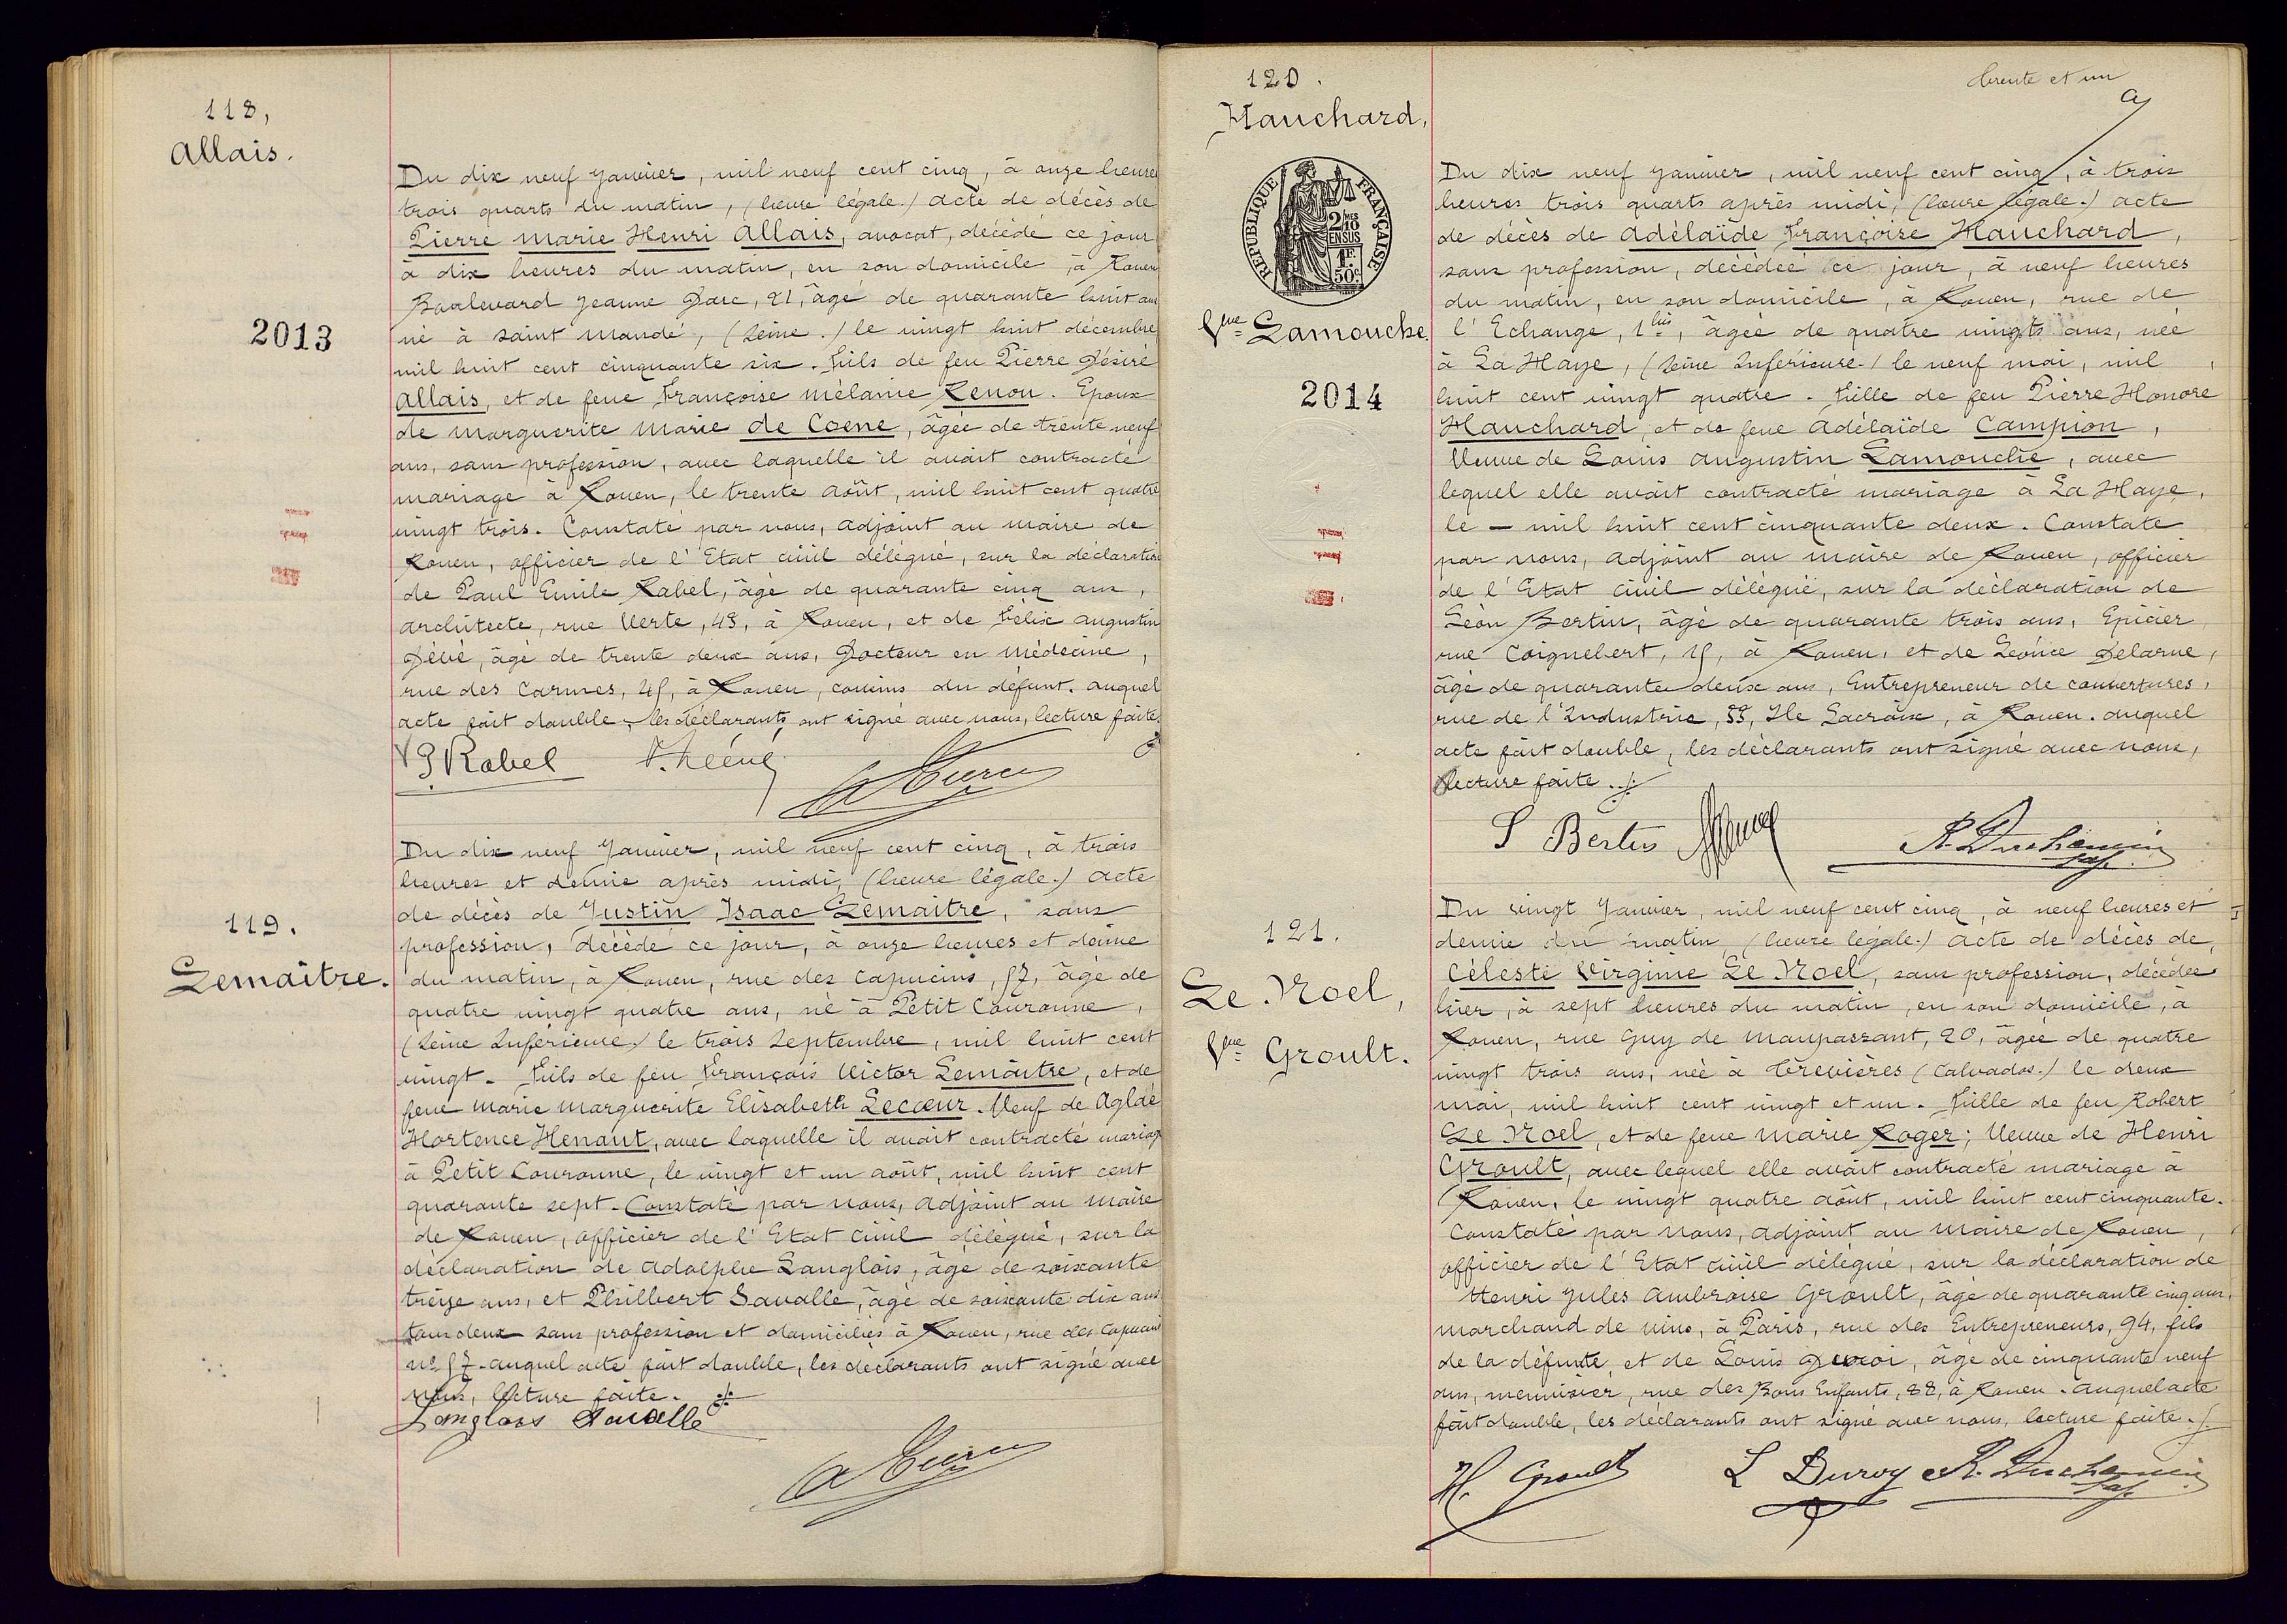 118,
Allais.
Du dix neuf Janvier, mil neuf cent cinq, à onze heures
trois quarts du matin, (heure légale.) acte de décès de
Pierre Marie Henri Allais, avocat, décédé ce jour
à dix heures du matin, en son domicile, à Rouen
Boulevard Jeanne Darc, 21, âgé de quarante huit ans
né à Saint Mandé, (Seine.) le vingt huit décembre
2013
mil huit cent cinquante six. Fils de feu Pierre Désiré
Allais, et de feue Françoise Mélanie Renou. Epoux
de Marguerite Marie de Coene, âgée de trente neuf
ans, sans profession, avec laquelle il avait contracté
mariage à Rouen, le trente Août, mil huit cent quatre
vingt trois. Constaté par nous, adjoint au maire de
Rouen, officier de l'Etat civil délégué, sur la déclaration
de Paul Emile Rabel, âgé de quarante cinq ans,
architecte, rue Verte, 43, à Rouen, et de Félix Augustin
âgé de trente deux ans, Docteur en Médecine,
rue des Carmes, à Rouen, cousins du défunt. auquel
acte fait double, les déclarants ont signé avec nous, lecture faite.
Rabel
119.
Lemaître.
Du dix neuf Janvier, mil neuf cent cinq, à trois
heures et demie après midi, (heure légale.) acte
de décès de Justin Isaac Lemaître, sans
profession, décédé ce jour, à onze heures et demie
du matin, à Rouen, rue des Capucins, 57, âgé de
quatre vingt quatre ans, né à Petit Couronne,
(Seine Inférieure.) le trois Septembre, mil huit cent
vingt. Fils de feu François Victor Lemaître, et de
feue Marie Marguerite Elisabeth Lecœur. Veuf de Aglaé
Hortence Henaut, avec laquelle il avait contracté mariage
à Petit Couronne, le vingt et un août, mil huit cent
quarante sept. Constaté par nous, adjoint au Maire
de Rouen, officier de l'Etat civil délégué, sur la
déclaration de Adolphe Langlois, âgé de soixante
treize ans, et Philbert Savalle, âgé de soixante dix ans
tous deux sans profession et domiciliés à Rouen, rue des Capucins
nº 57. auquel acte fait double, les déclarants ont signé avec
nous, lecture faite.
Langlois Savalle
120.
Hauchard,
trente et un
RÉPUBLIQUE FRANÇAISE
2/10MES
EN SUS
1F.
50c.
Vve Lamouche.
2014
Du dix neuf Janvier, mil neuf cent cinq, à trois
heures trois quarts après midi, (heure légale.) acte
de décès de Adélaïde Françoise Hauchard,
sans profession, décédée ce jour, à neuf heures
du matin, en son domicile, à Rouen, rue de
l'Echange, 1bis, âgée de quatre vingts ans, née
à La Haye, (Seine Inférieure.) le neuf mai, mil
huit cent vingt quatre. Fille de feu Pierre Honoré
Hauchard, et de feue Adélaïde Campion,
Veuve de Louis Augustin Lamouche, avec
lequel elle avait contracté mariage à La Haye,
le — mil huit cent cinquante deux. Constaté
par nous, adjoint au maire de Rouen, officier
de l'Etat civil délégué, sur la déclaration de
Léon Bertin, âgé de quarante trois ans, Epicier
rue Coignebert, 15, à Rouen, et de Léonce Delarue,
âgé de quarante deux ans, Entrepreneur de couvertures,
rue de l'Industrie, 53, Ile Lacroix, à Rouen. auquel
acte fait double, les déclarants ont signé avec nous,
lecture faite.
Bertin R. Duchemin
121.
Le Noel,
Vve Groult.
Du vingt Janvier, mil neuf cent cinq, à neuf heures et
demie du matin, (heure légale.) acte de décès de,
Céleste Virginie Le Noel, sans profession, décédée
hier, à sept heures du matin, en son domicile, à
Rouen, rue Guy de Maupassant, 20, âgée de quatre
vingt trois ans, née à Trévières (Calvados.) le deux
mai, mil huit cent vingt et un. Fille de feu Robert
Le Noel, et de feue Marie Roger; Veuve de Henri
Groult, avec lequel elle avait contracté mariage à
Rouen, le vingt quatre août, mil huit cent cinquante.
Constaté par nous, adjoint au Maire de Rouen,
officier de l'Etat civil délégué, sur la déclaration de
Henri Jules Ambroise Groult, âgé de quarante cinq ans,
marchand de vins, à Paris, rue des Entrepreneurs, 94, fils
de la défunte, et de Louis âgé de cinquante neuf
ans, menuisier, rue des Bons Enfants, 88, à Rouen. auquel acte
fait double, les déclarants ont signé avec nous, lecture faite.
H. Groult L Duroy R. Duchemin